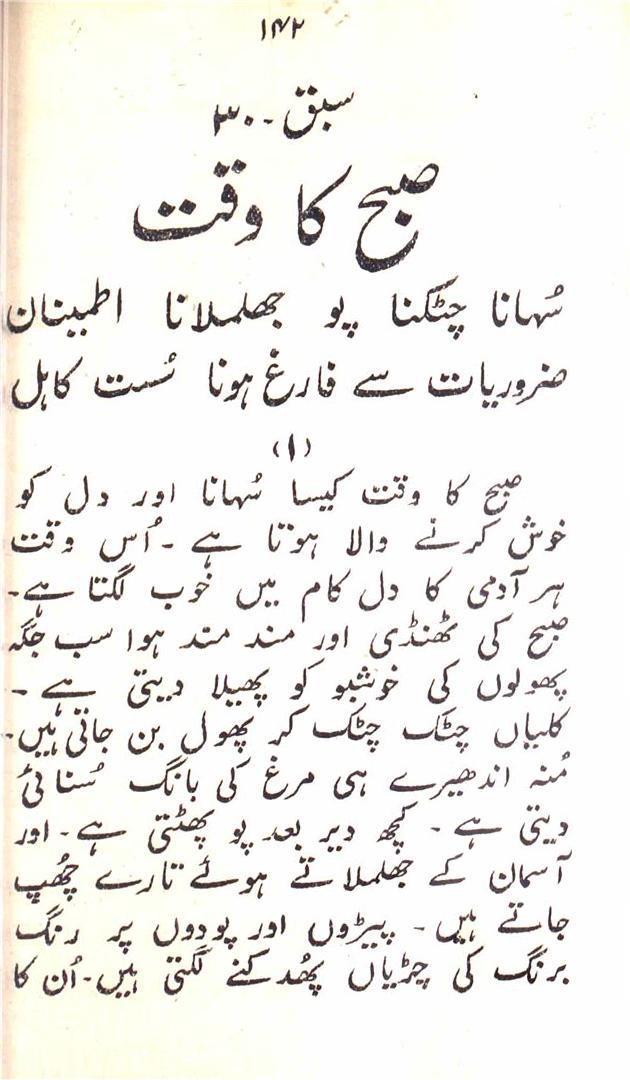 ۱۴۲
سبق ۔ ۳۰
صبح کا وقت
سُہانا چٹکنا پو جھلملانا اطمینان
ضروریات سے فارغ ہونا سُست کاہل
(۱)
صبح کا وقت کیسا سُہانا اور دل کو
خوش کرنے والا ہوتا ہے ۔ اُس وقت
ہر آدمی کا دل کام میں خوب لگتا ہے۔
صبح کی ٹھنڈی اور مند مند ہوا سب جگہ
پھولوں کی خوشبو کو پھیلا دیتی ہے ۔
کلیاں چٹک چٹک کر پھول بن جاتی ہیں۔
مُنہ اندھیرے ہی مرغ کی بانگ سُنائی
دیتی ہے ۔ کچھ دیر بعد پو پھٹتی ہے۔ اور
آسمان کے جھلملاتے ہوئے تارے چُھپ
جاتے ہیں ۔ پیڑوں اور پودوں پر رنگ
برنگ کی چڑیاں پُھدکنے لگتی ہیں۔ اُن کا